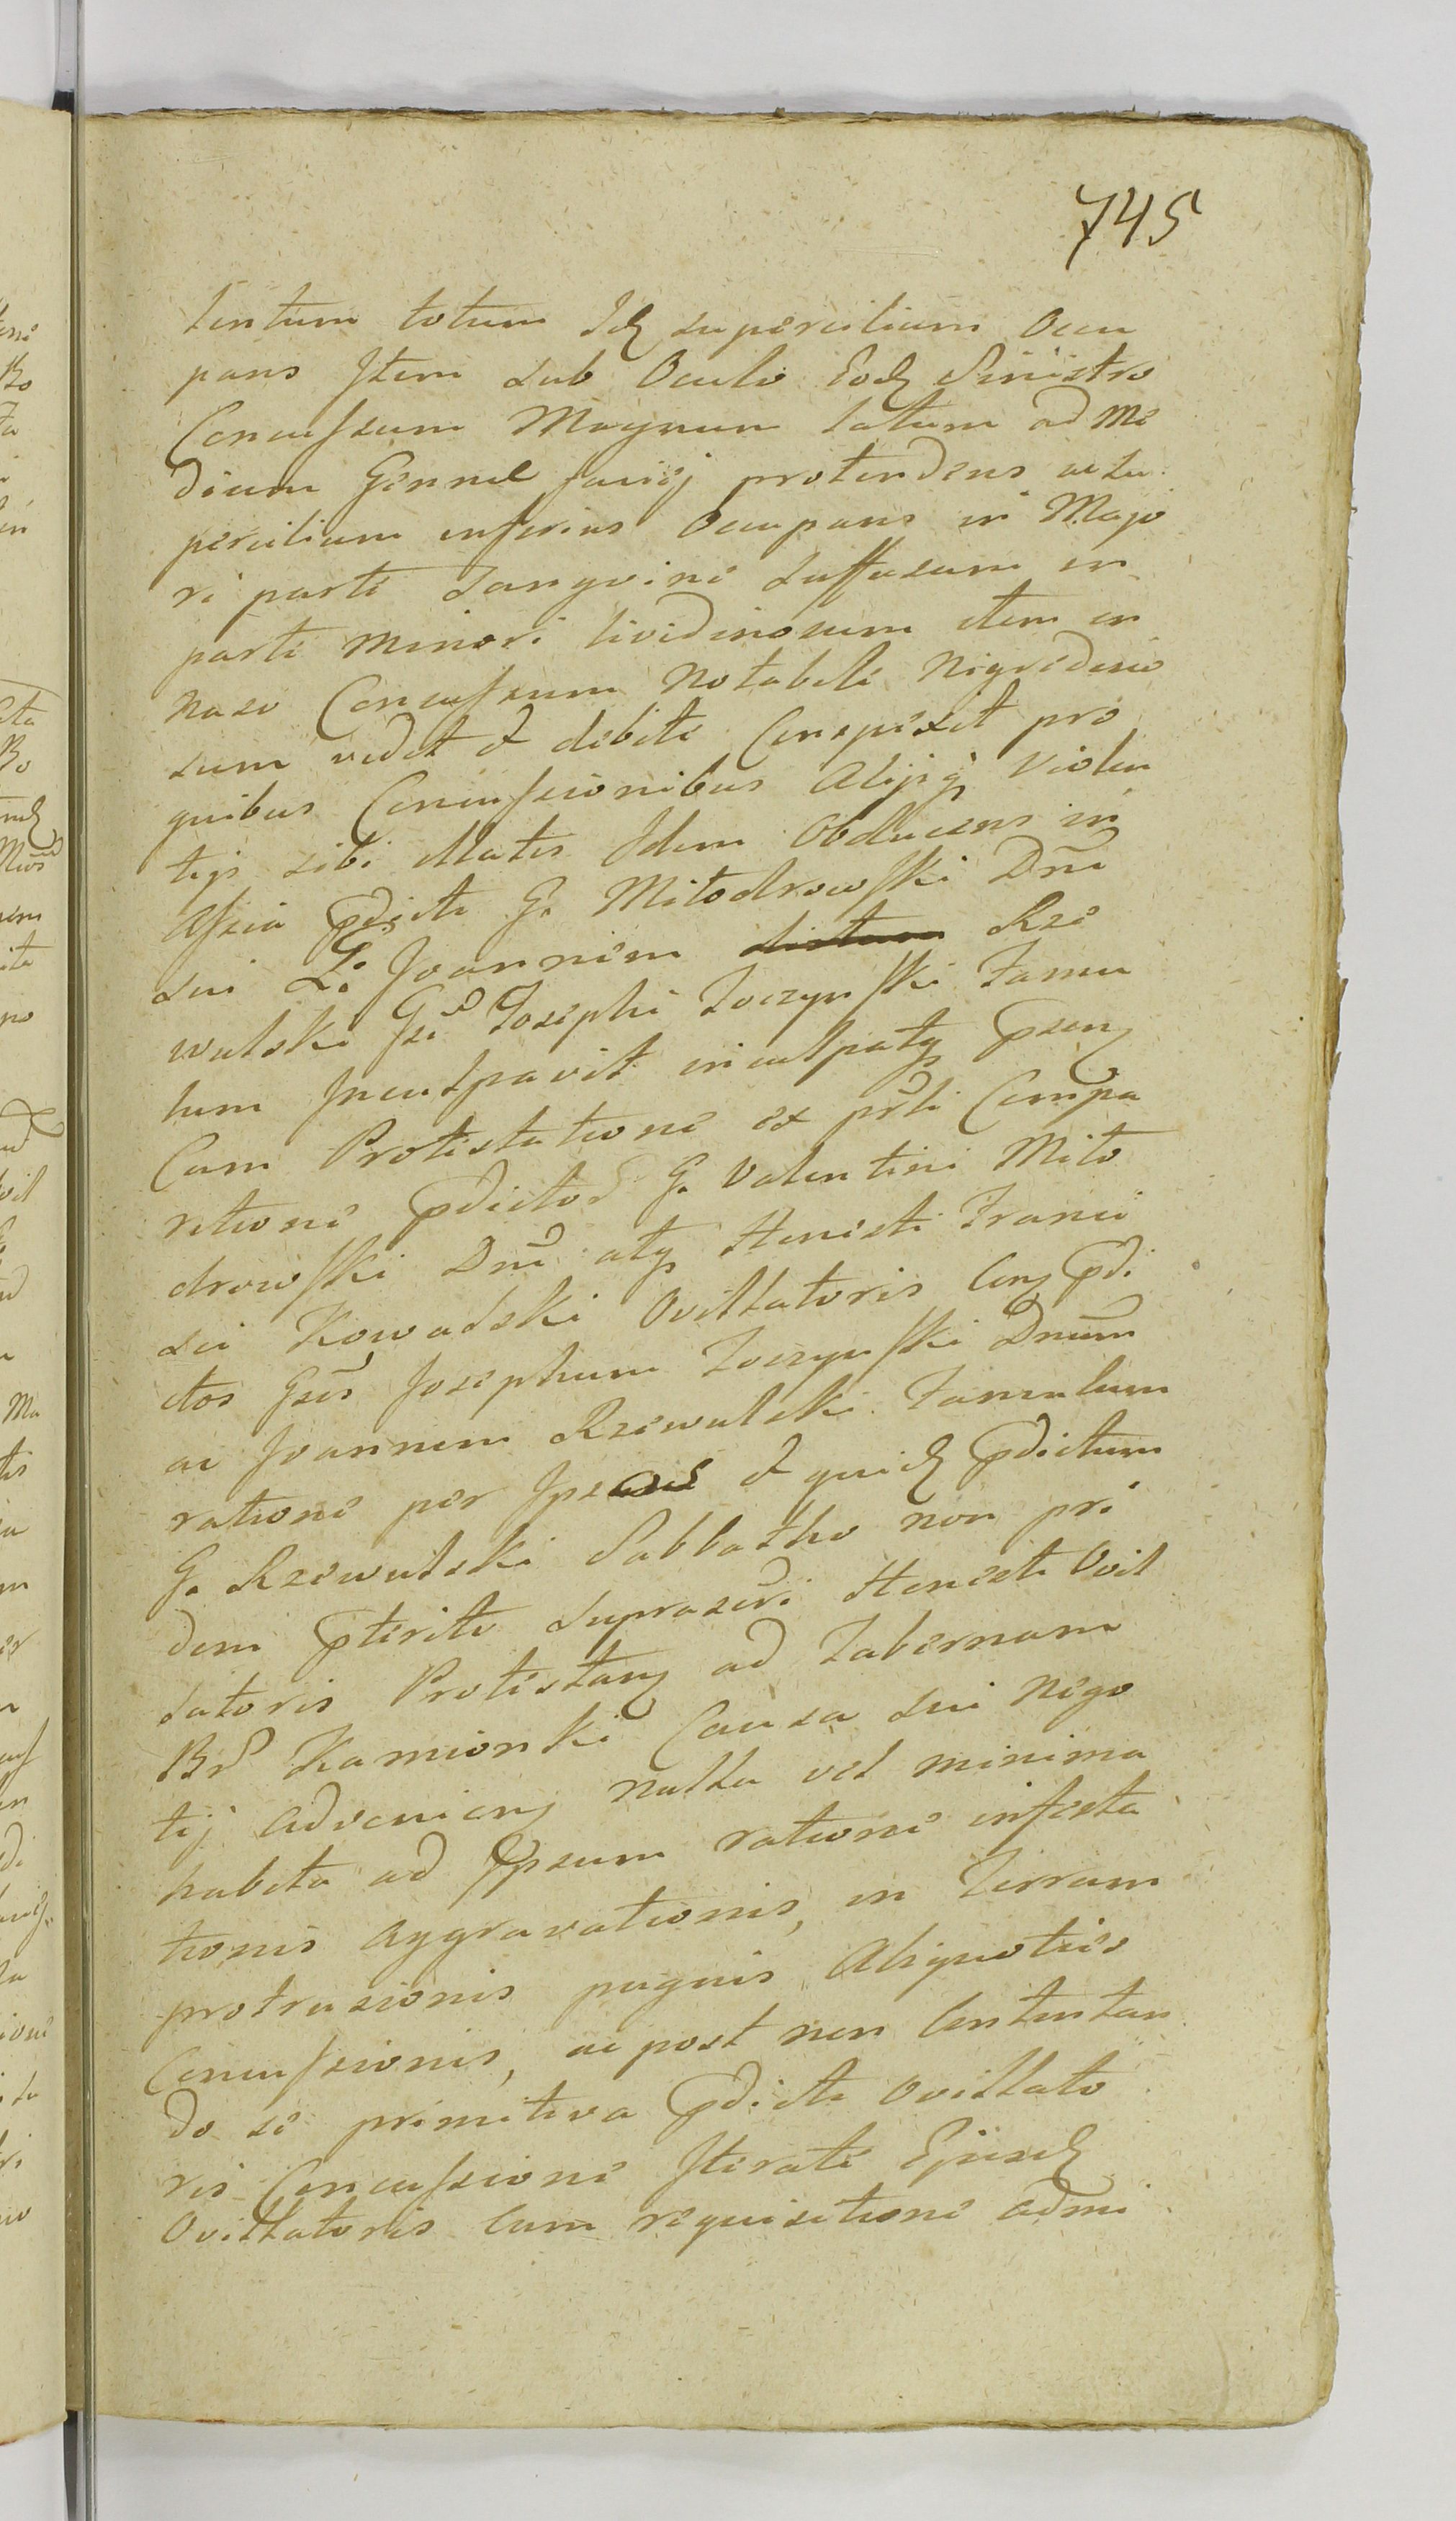 745
lentum totum Idq supercilium Occu
pans Item sub Oculo Eodq Sinistro
Concussum Magnum latum ad Me
dium Gennae faciej protendens ac su
percilium inferius Occupans in Majo
ri parte sangvine suffusum in
parte minori lividinosum item in
naso Concussum notabile nigredino
sum vidit & debite Conspexit pro
quibus Concussionibus Alijsq violen
tijs sibi illatis Idem Obducens in
assia pdicti G. Mitodrowski Dni
sui L. Joannem Rze
wulski Gsi Josephi Toczynski Famu
lum Inculpavit inculpatq psenq
Cum Protestatione ex pti Compa
ritione pdictor G. Valentini Mito
drowski Dni atq Honesti Franci
sci Kowalski Ovillatoris Conq pdi
ctos Gsis Josephum Toczynski Dnum
ac Joannem Rzewulski Famulum
ratione per & quidq pdictum
G. Rzewulski Sabbatho non pri
dem pteriti suprascri Honesti Ovil
latoris Protestanq ad Tabernam
Br Kamionki Causa sui nego
tij advenienq nulla vel minima
habita ad Ipsum ratione infesta
tionis aggravationis, in Terram
protrusionis pugnis Aliquoties
Concussionis, ac post non Contentan
do se primitiva pdicti Ovillato
ris Concussione Iterate Ejusdq
Ovillatoris Cum requisitione admi